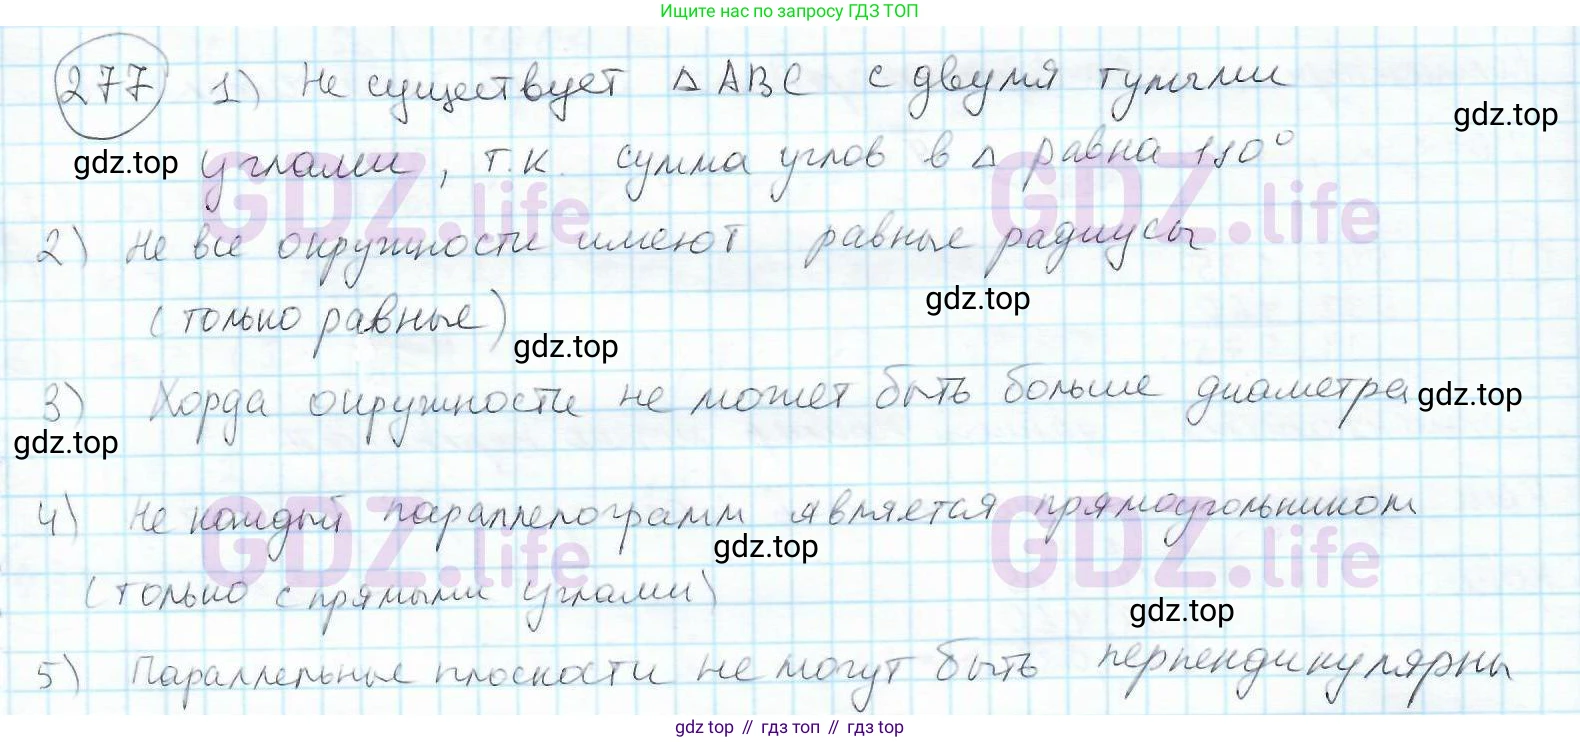 Ищите нас по запросу ГДЗ ТОП
277 1) Не существует Δ ABC с двумя тупыми
gdz.top
gdz.top углами, т.к. сумма углов в Δ равна 180°
GDZ.life GDZ.life
2) Не все окружности имеют равные радиусы
gdz.top
(только равные)
gdz.top
3) Хорда окружности не может быть больше диаметра gdz.top
gdz.top
4) Не каждый параллелограмм является прямоугольником
GDZ.life gdz.top GDZ.life
(только с прямыми углами)
gdz.top
5) Параллельные плоскости не могут быть перпендикулярны
gdz top // гдз топ // гдз top